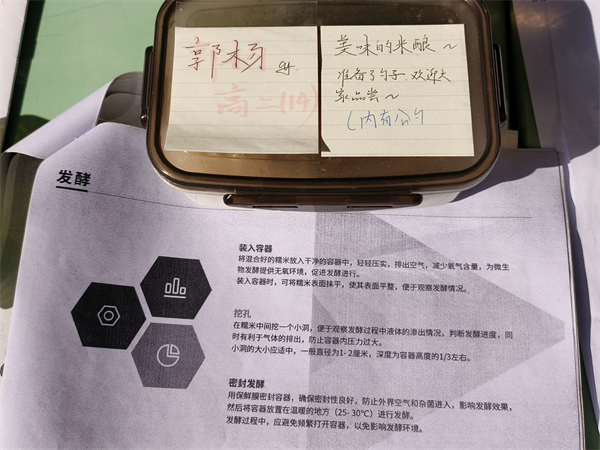 郭杨
高二(19)
美味的米酿~
准备了勺子 欢迎大
家品尝~
(内有公勺
发酵
装入容器
将混合好的糯米放入干净的容器中，轻轻压实，排出空气，减少氧气含量，为微生
物发酵提供无氧环境，促进发酵进行。
装入容器时，可将糯米表面抹平，使其表面平整，便于观察发酵情况。
挖孔
在糯米中间挖一个小洞，便于观察发酵过程中液体的渗出情况，判断发酵进度，同
时有利于气体的排出，防止容器内压力过大。
小洞的大小应适中，一般直径为1-2厘米，深度为容器高度的1/3左右。
密封发酵
用保鲜膜密封容器，确保密封性良好，防止外界空气和杂菌进入，影响发酵效果，
然后将容器放置在温暖的地方（25-30℃）进行发酵。
发酵过程中，应避免频繁打开容器，以免影响发酵环境。